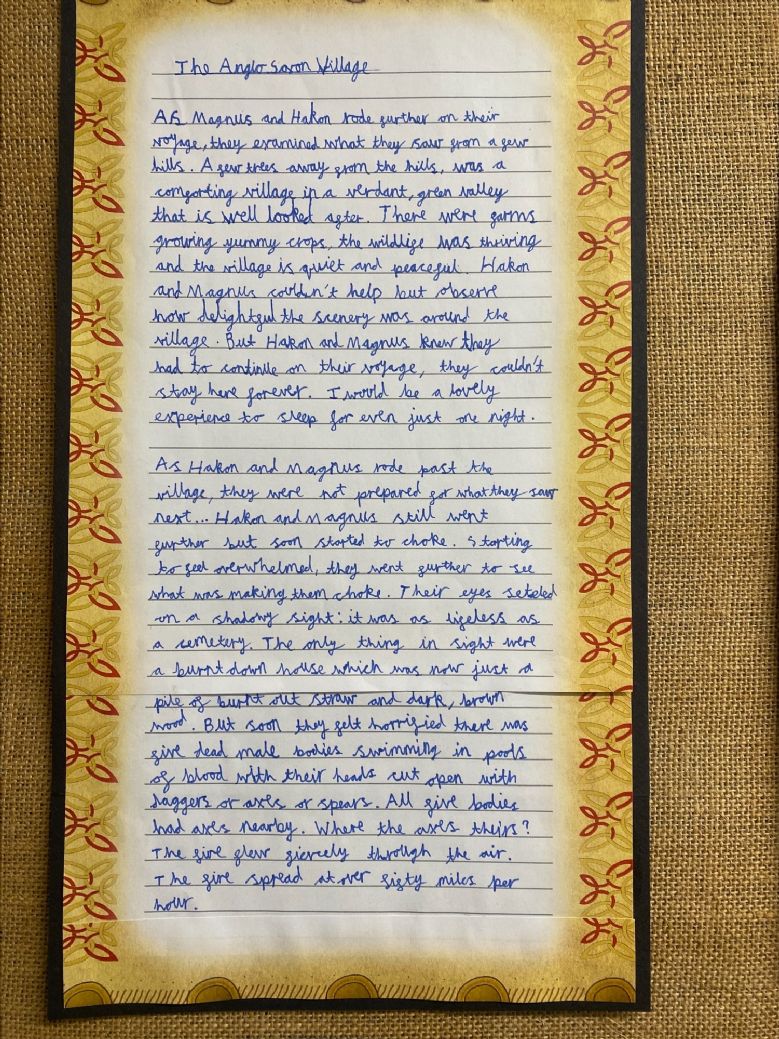 The Anglo Saxon Village
As Magnus and Hakon rode further on their
voyage, they examined what they saw from a few
hills. A few trees away from the hills, was a
comforting village in a verdant, green valley
that is well looked after. There were farms
growing yummy crops, the wildlife was thriving
and the village is quiet and peaceful. Hakon
and Magnus couldn't help but observe
how delightful the scenery was around the
village. But Hakon and Magnus knew they
had to continue on their voyage, they couldn't
stay here forever. I would be a lovely
experience to sleep for even just one night.
As Hakon and Magnus rode past the
village, they were not prepared for what they saw
next... Hakon and Magnus still went
further but soon started to choke. Starting
to feel overwhelmed, they went further to see
what was making them choke. Their eyes seteled
on a shadowy sight: it was as lifeless as
a cemetery. The only thing in sight were
a burnt down house which was now just a
pile of burnt out straw and dark, brown
wood. But soon they felt horrified there was
five dead male bodies swimming in pools
of blood with their heads cut open with
daggers or axes or spears. All five bodies
had axes nearby. Where the axes theirs?
The fire flew fiercely through the air.
The fire spread at over fifty miles per
hour.